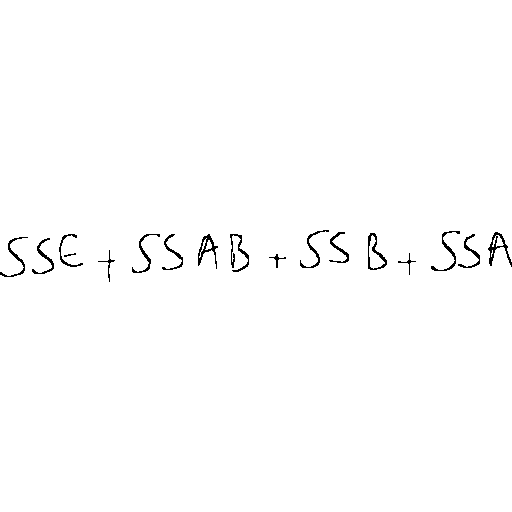 SSE + SSAB + SSB + SSA